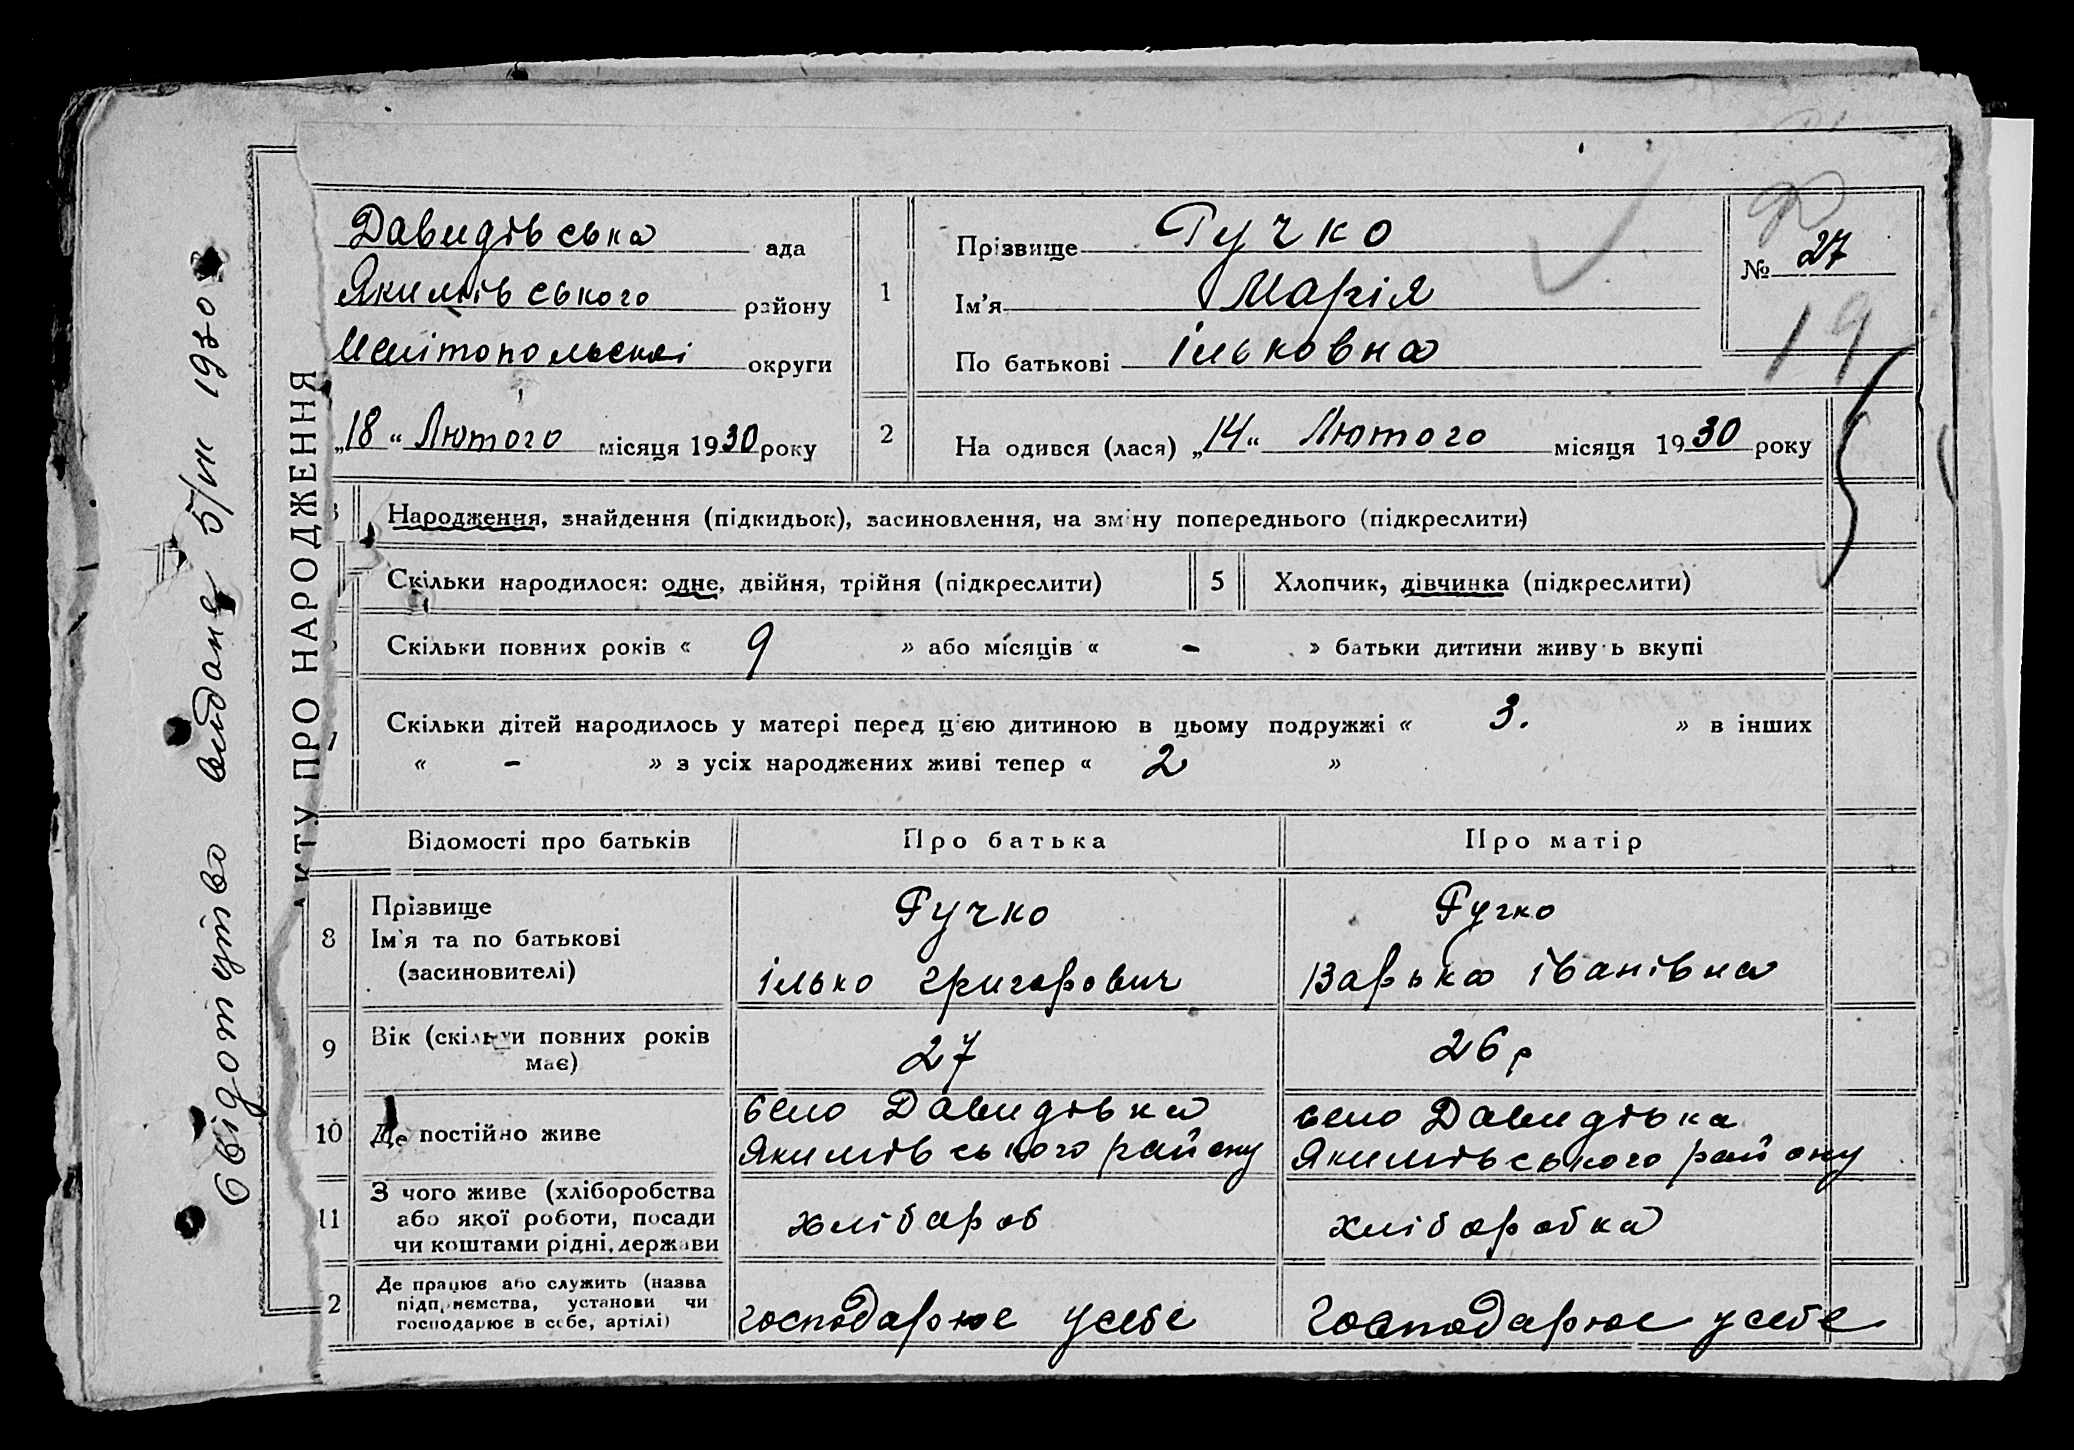 Свідоцтво видане 5/III 1930
АКТУ ПРО НАРОДЖЕННЯ
Давидівська ада
Якимівського району
Мелітопольскої округи
„18“ Лютого місяця 1930 року
1
Прізвище Гучко
Ім'я Марія
По батькові Ільковна
№ 27
19
2
На одився (лася) „14“ Лютого місяця 1930 року
Народження, знайдення (підкидьок), засиновлення, на зміну попереднього (підкреслити)
Скільки народилося: одне, двійня, трійня (підкреслити)
5 Хлопчик, дівчинка (підкреслити)
Скільки повних років « 9 » або місяців « - » батьки дитини живу ь вкупі
7 Скільки дітей народилось у матері перед цією дитиною в цьому подружжі « 3. » в інших
« - » з усіх народжених живі тепер « 2 »
Відомості про батьків Про батька Про матір
8 Прізвище
Ім'я та по батькові
(засиновителі)
Гучко
Ілько Григорович
Гучко
Варька Іванівна
9 Вік (скільки повних років
має)
27
26 р
10 Де постійно живе
село Давидівка
Якимівського району
село Давидівка
Якимівського району
11 З чого живе (хліборобства
або якої роботи, посади
чи коштами рідні, держави
хлібароб
хліборобка
2 Де працює або служить (назва
підприємства, установи чи
господарює в себе, артілі)
господарює усебе
господарює усебе